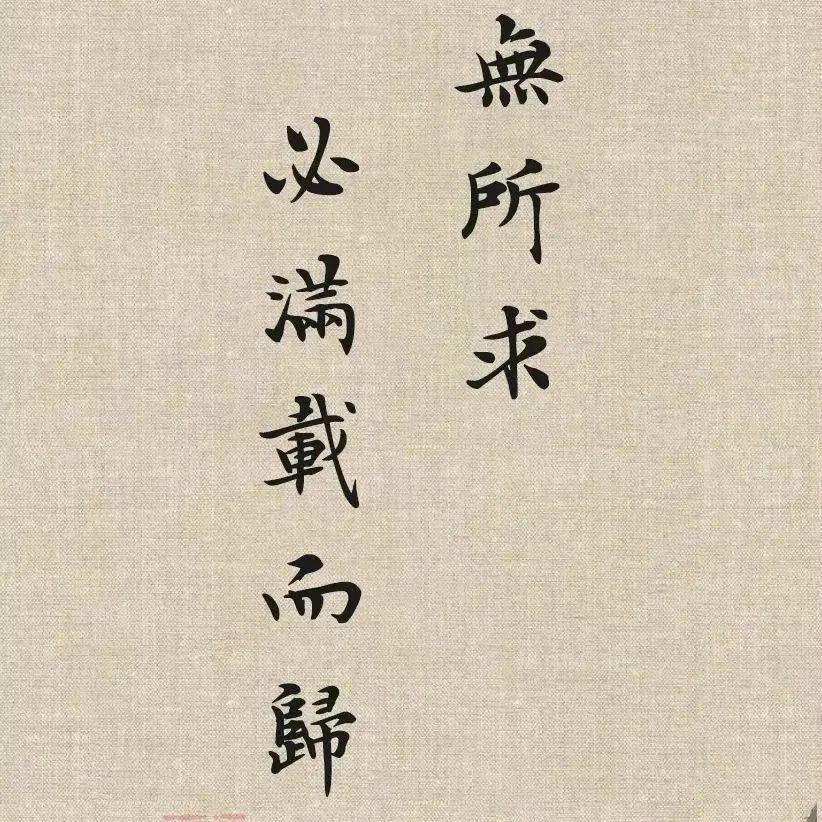 無所求
必滿載而歸